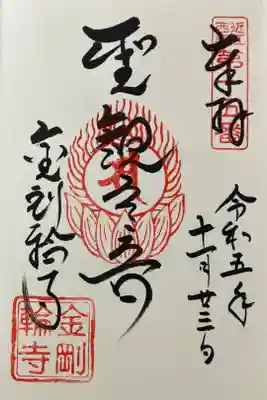 奉拝
令和五年
十一月廿三日
聖観世音
金剛輪寺
金剛
輪寺